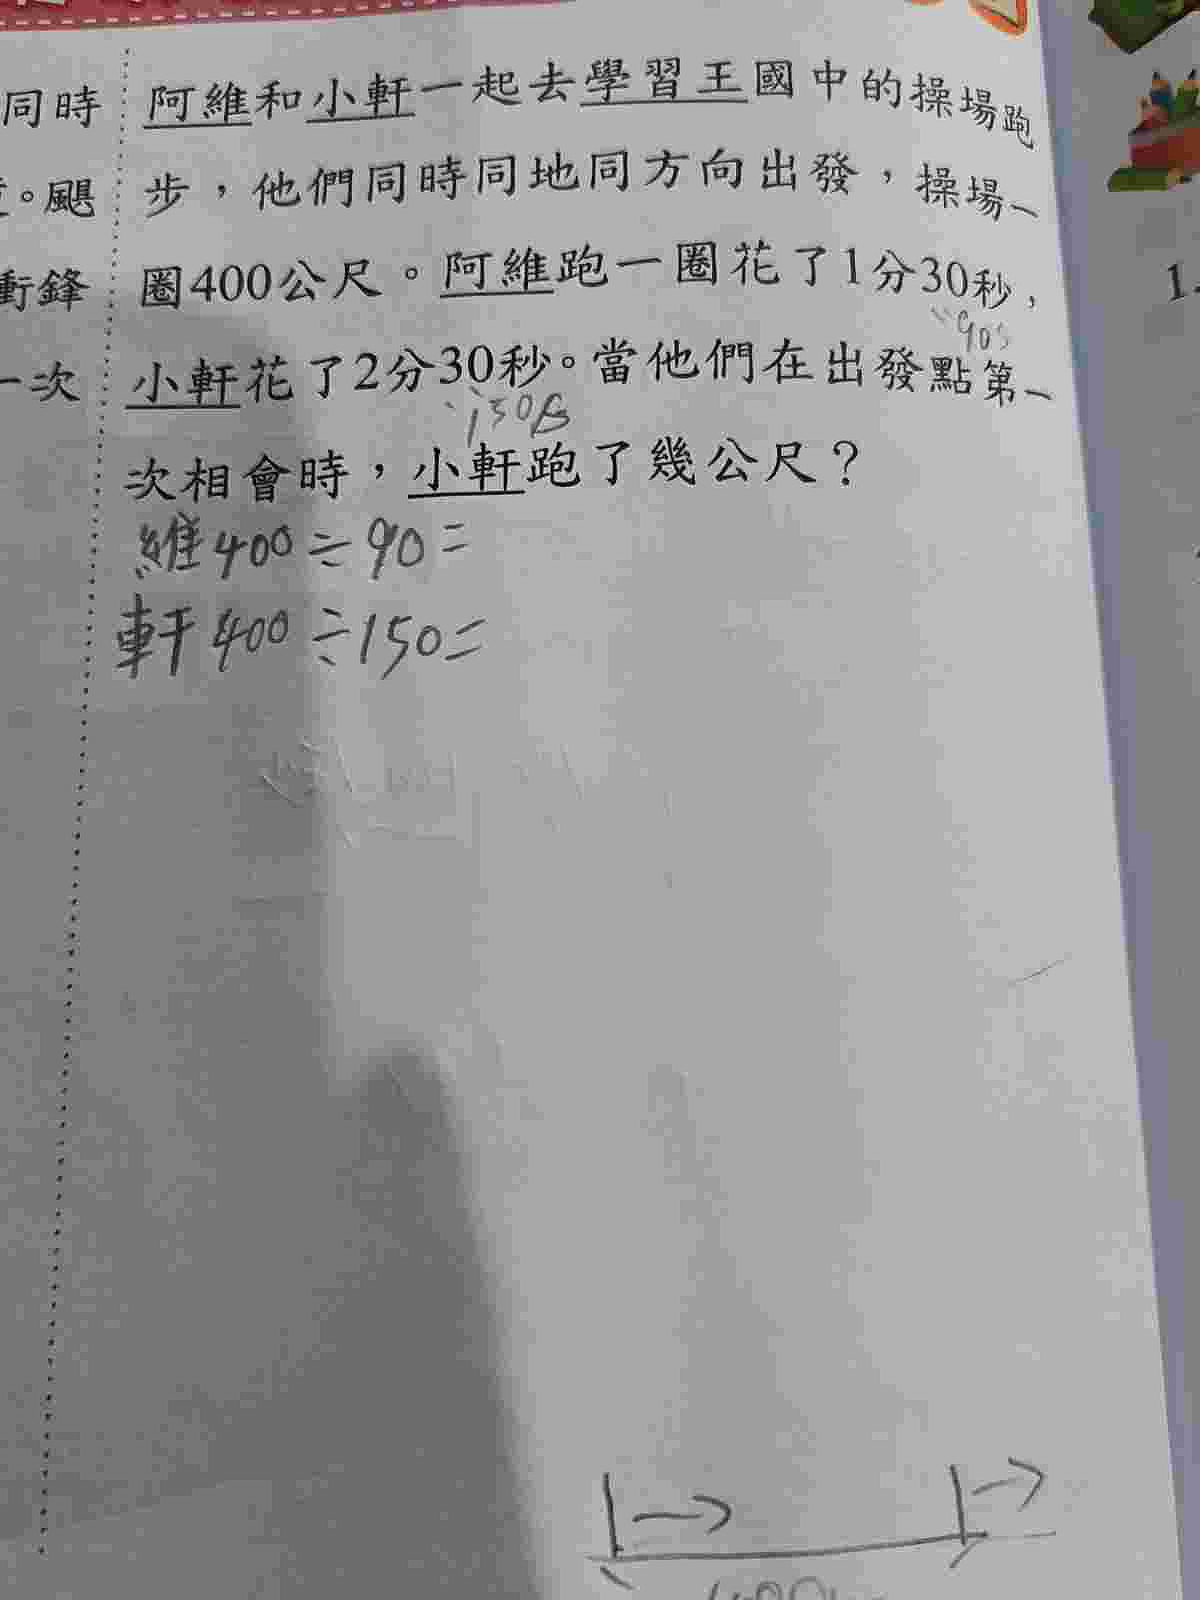 同時
。颶
衝鋒
一次
阿維和小軒一起去學習王國中的操場跑
步，他們同時同地同方向出發，操場一
圈400公尺。阿維跑一圈花了1分30秒，
90s
小軒花了2分30秒。當他們在出發點第一
150s
次相會時，小軒跑了幾公尺？
維400÷90=
軒400÷150=
1.